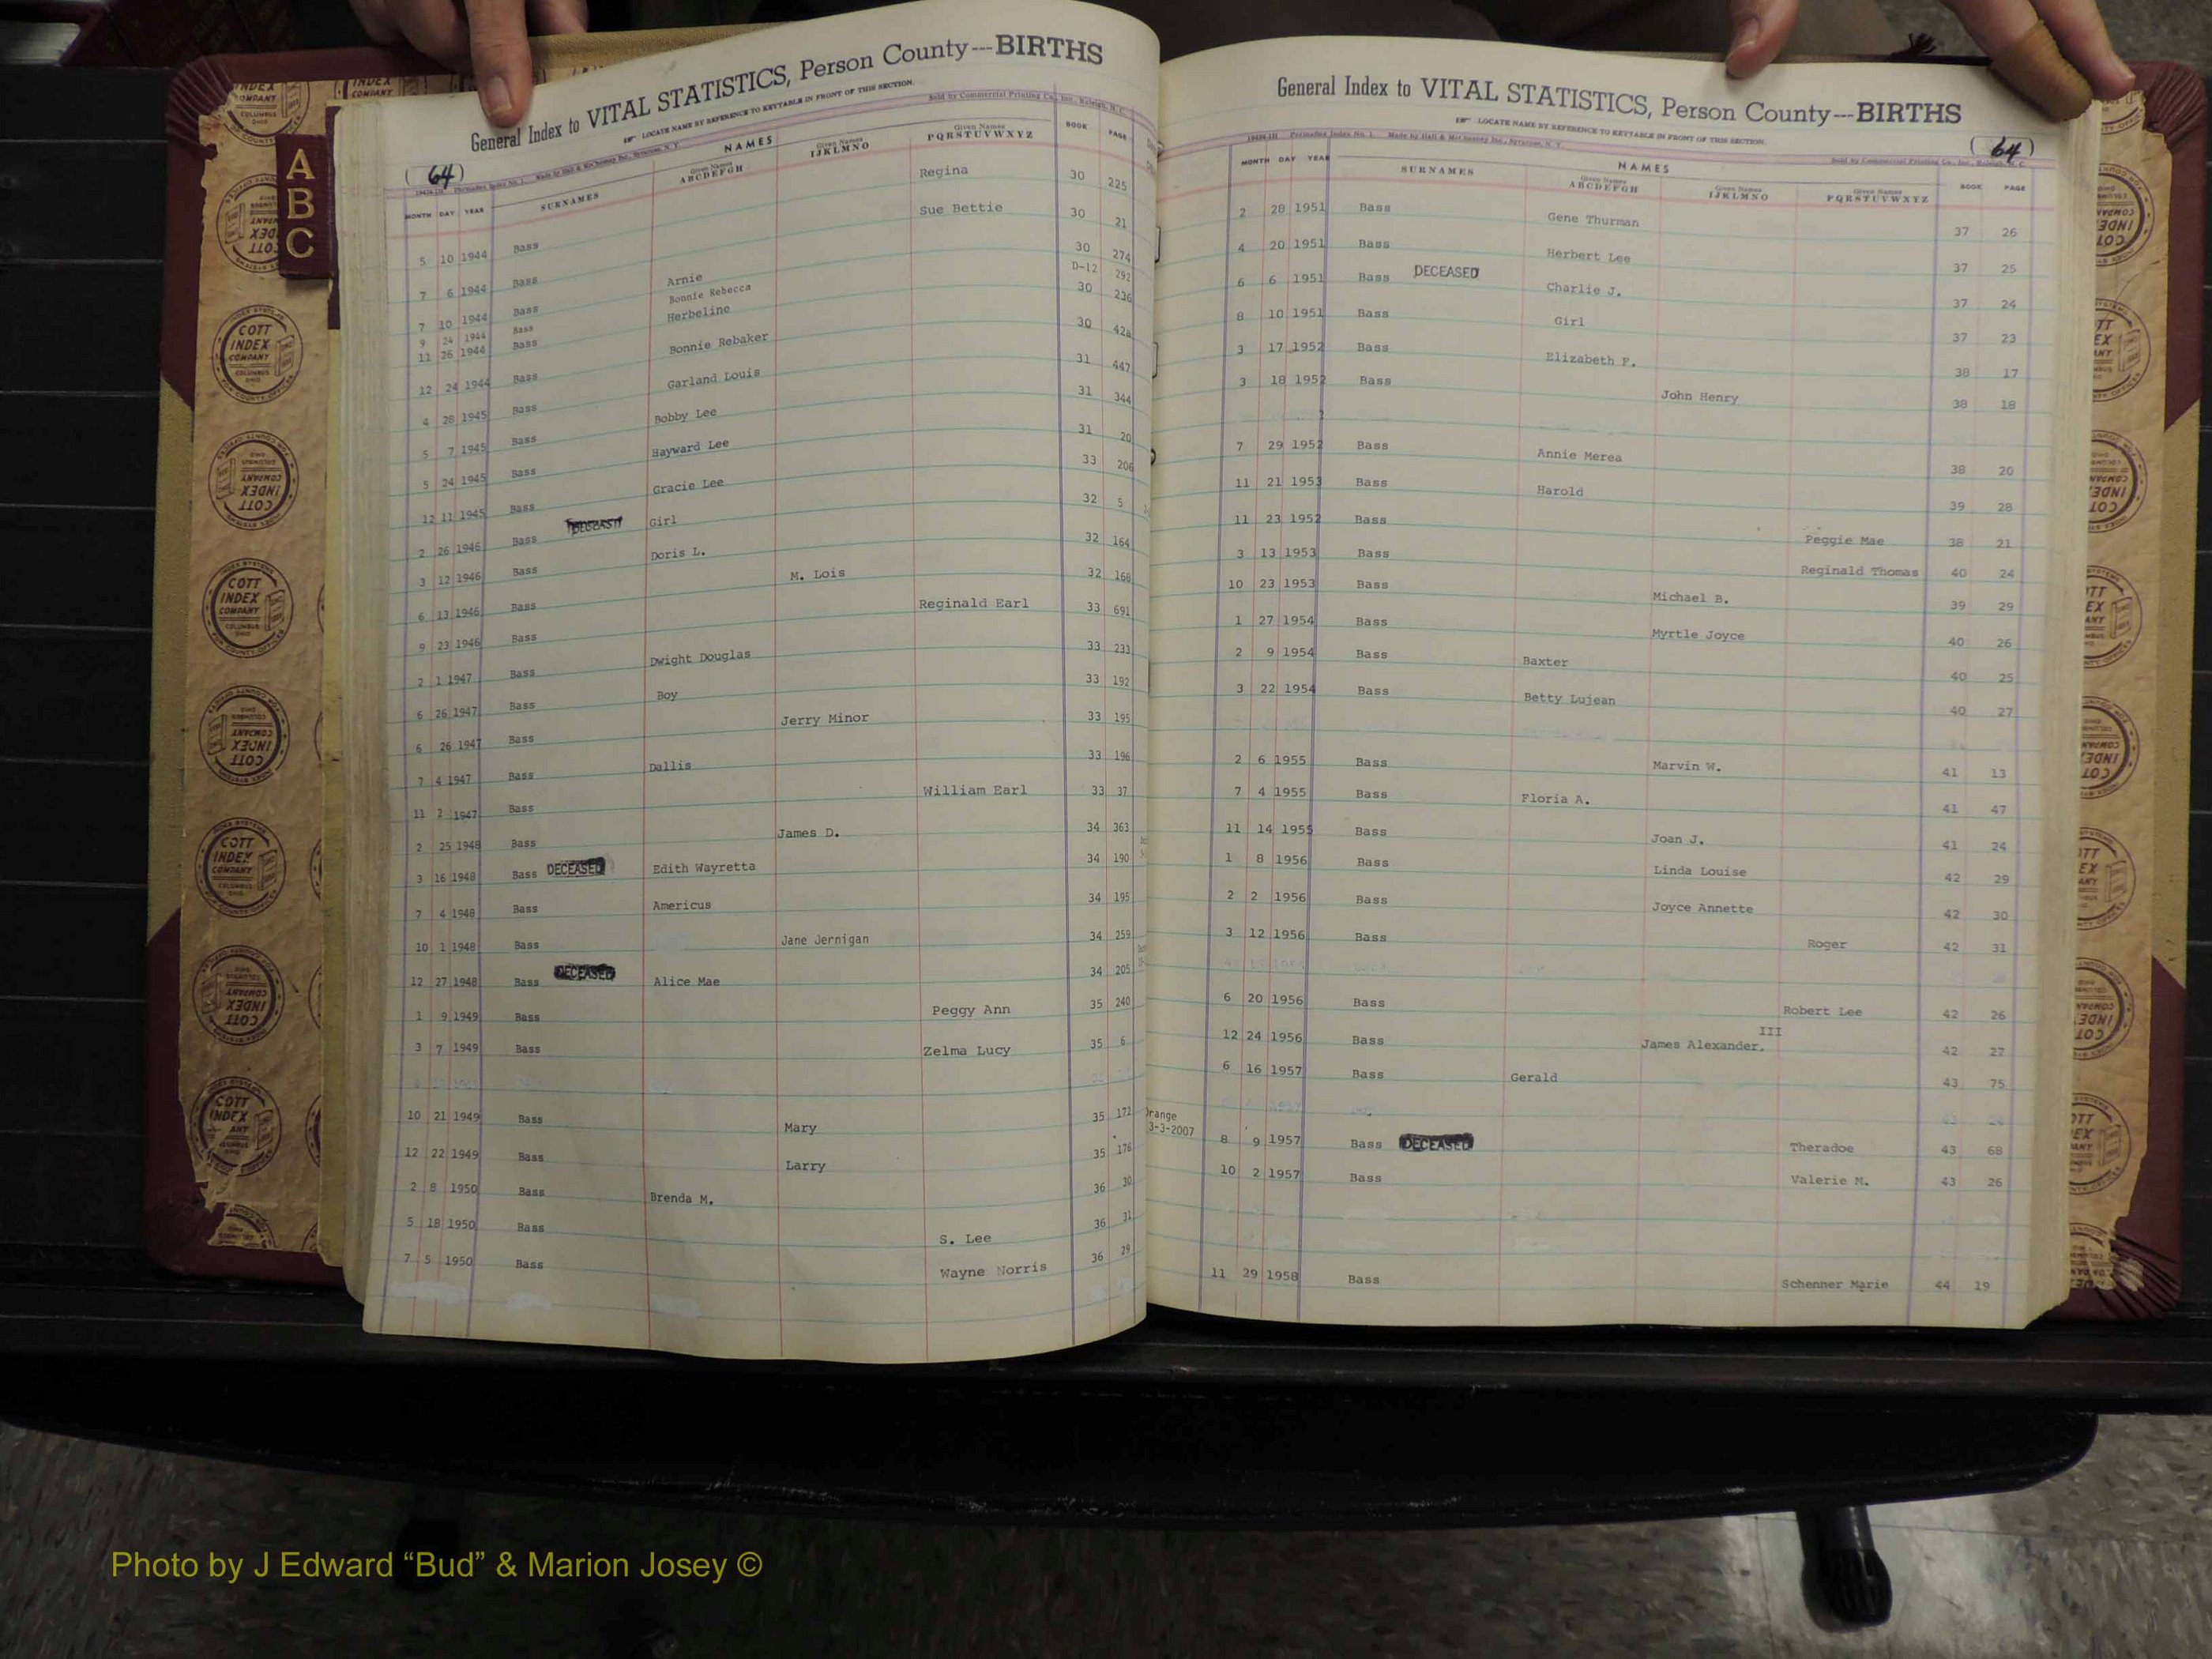 General Index to VITAL STATISTICS, Person County---BIRTHS
LOCATE NAME BY REFERENCE TO KEYTABLE IN FRONT OF THIS SECTION.
(64)
Sold by Commercial Printing Co., Inc., Raleigh, N. C.
MONTH DAY YEAR SURNAMES NAMES Given Names ABCDEFGH Given Names IJKLMNO Given Names PQRSTUVWXYZ BOOK PAGE
5 10 1944 Bass Regina 30 225
7 6 1944 Bass Sue Bettie 30 21
7 10 1944 Bass Arnie 30 274
9 24 1944 Bass Bonnie Rebecca D-12 292
11 26 1944 Bass Herbeline 30 236
12 24 1944 Bass Bonnie Rebaker 30 42
4 28 1945 Bass Garland Louis 31 447
5 7 1945 Bass Bobby Lee 31 344
5 24 1945 Bass Hayward Lee 31 20
12 11 1945 Bass Gracie Lee 33 206
2 26 1946 Bass Girl 32 5
3 12 1946 Bass Doris L. 32 164
6 13 1946 Bass M. Lois 32 168
9 23 1946 Bass Reginald Earl 33 691
2 1 1947 Bass Dwight Douglas 33 231
6 26 1947 Bass Boy 33 192
6 26 1947 Bass Jerry Minor 33 195
7 4 1947 Bass Dallis 33 196
11 2 1947 Bass William Earl 33 37
2 25 1948 Bass James D. 34 363
3 16 1948 Bass DECEASED Edith Wayretta 34 190
7 4 1948 Bass Americus 34 195
10 1 1948 Bass Jane Jernigan 34 259
12 27 1948 Bass DECEASED Alice Mae 34 205
1 9 1949 Bass Peggy Ann 35 240
3 7 1949 Bass Zelma Lucy 35 6
10 21 1949 Bass Mary 35 172
12 22 1949 Bass Larry 35 176
2 8 1950 Bass Brenda M. 36 30
5 18 1950 Bass S. Lee 36 31
7 5 1950 Bass Wayne Norris 36 29
General Index to VITAL STATISTICS, Person County---BIRTHS
LOCATE NAME BY REFERENCE TO KEYTABLE IN FRONT OF THIS SECTION.
(64)
MONTH DAY YEAR SURNAMES NAMES Given Names ABCDEFGH Given Names IJKLMNO Given Names PQRSTUVWXYZ BOOK PAGE
2 28 1951 Bass Gene Thurman 37 26
4 20 1951 Bass Herbert Lee 37 25
6 6 1951 Bass DECEASED Charlie J. 37 24
8 10 1951 Bass Girl 37 23
3 17 1952 Bass Elizabeth F. 38 17
3 18 1952 Bass John Henry 38 18
7 29 1952 Bass Annie Merea 38 20
11 21 1953 Bass Harold 39 28
11 23 1952 Bass Peggie Mae 38 21
3 13 1953 Bass Reginald Thomas 40 24
10 23 1953 Bass Michael B. 39 29
1 27 1954 Bass Myrtle Joyce 40 26
2 9 1954 Bass Baxter 40 25
3 22 1954 Bass Betty Lujean 40 27
2 6 1955 Bass Marvin W. 41 13
7 4 1955 Bass Floria A. 41 47
11 14 1955 Bass Joan J. 41 24
1 8 1956 Bass Linda Louise 42 29
2 2 1956 Bass Joyce Annette 42 30
3 12 1956 Bass Roger 42 31
6 20 1956 Bass Robert Lee 42 26
12 24 1956 Bass James Alexander, III 42 27
6 16 1957 Bass Gerald 43 75
3-3-2007
8 9 1957 Bass DECEASED Theradoe 43 68
10 2 1957 Bass Valerie M. 43 26
11 29 1958 Bass Schenner Marie 44 19
A
B
C
COTT
INDEX
COMPANY
COLUMBUS
OHIO
Photo by J Edward “Bud” & Marion Josey ©